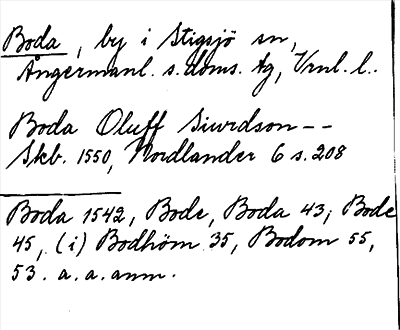 Boda, by i Stigsjö sn,
Ångermanl. s. doms. tg, Vrnl. l..
Boda Oluff Siurdson--
Skb. 1550, Nordlander 6 s. 208
Boda 1542, Bode, Boda 43, Bode
45, (i) Bodhöm 35, Bodom 55,
53. a. a. anm.